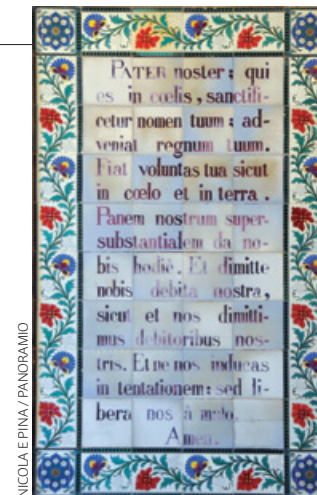 PATER noster: qui
es in cœlis, sanctifi-
cetur nomen tuum: ad-
veniat regnum tuum.
Fiat voluntas tua sicut
in cœlo et in terra.
Panem nostrum super-
substantialem da no-
bis hodiè. Et dimitte
nobis debita nostra,
sicut et nos dimitti-
mus debitoribus nos-
tris. Et ne nos inducas
in tentationem: sed li-
bera nos à malo.
Amen.
NICOLA E PINA / PANORAMIO